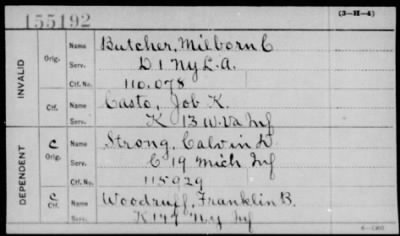 155192
(3-H-4)
INVALID
Orig.
Name Butcher, Milborn C
Serv. D 1 Ny L. A.
Ctf. No. 110.078
Ctf.
Name Casto, Job K.
Serv. K 13 W. Va Inf
DEPENDENT
C
Orig.
Name Strong, Calvin D.
Serv. C 19 Mich Inf
Ctf. No. 115929
C
Ctf.
Name Woodruff, Franklin B.
Serv. K 147 N.Y Inf